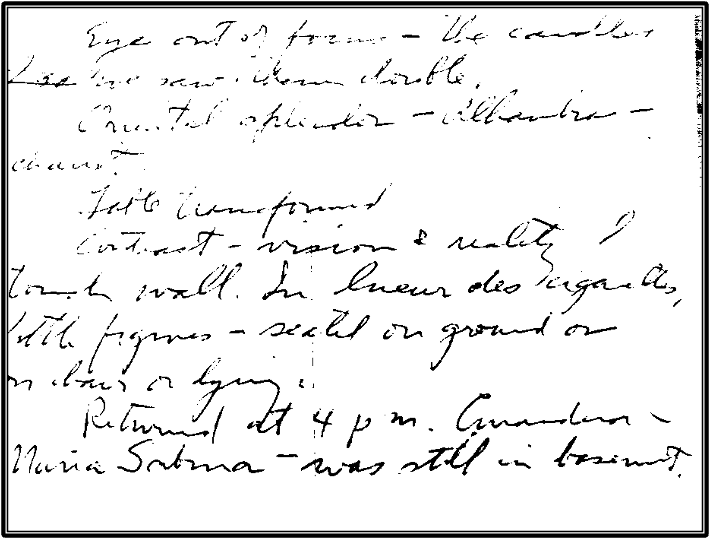 Eye out of focus – the candles
we saw them double.
Oriental splendor – Alhambra –
chariot.
Table transformed
Contrast – vision & reality. I
touch wall.
little figures – seated on ground or
on chair or lying.
Returned at 4 p m. Curandera –
Maria Sabina – was still in basement.